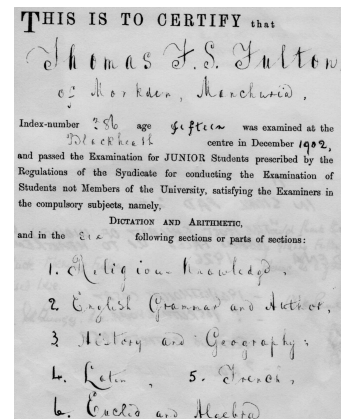 THIS IS TO CERTIFY that
Thomas F. S. Fulton
of Morkden,
Index-number 386 age fifteen was examined at the
Blackheath centre in December 1902,
and passed the Examination for JUNIOR Students prescribed by the
Regulations of the Syndicate for conducting the Examination of
Students not Members of the University, satisfying the Examiners in
the compulsory subjects, namely,
DICTATION AND ARITHMETIC,
and in the six following sections or parts of sections:
1. Religious Knowledge,
2. English Grammar and Author,
3 History and Geography;
4. Latin, 5. French,
6. Euclid and Algebra